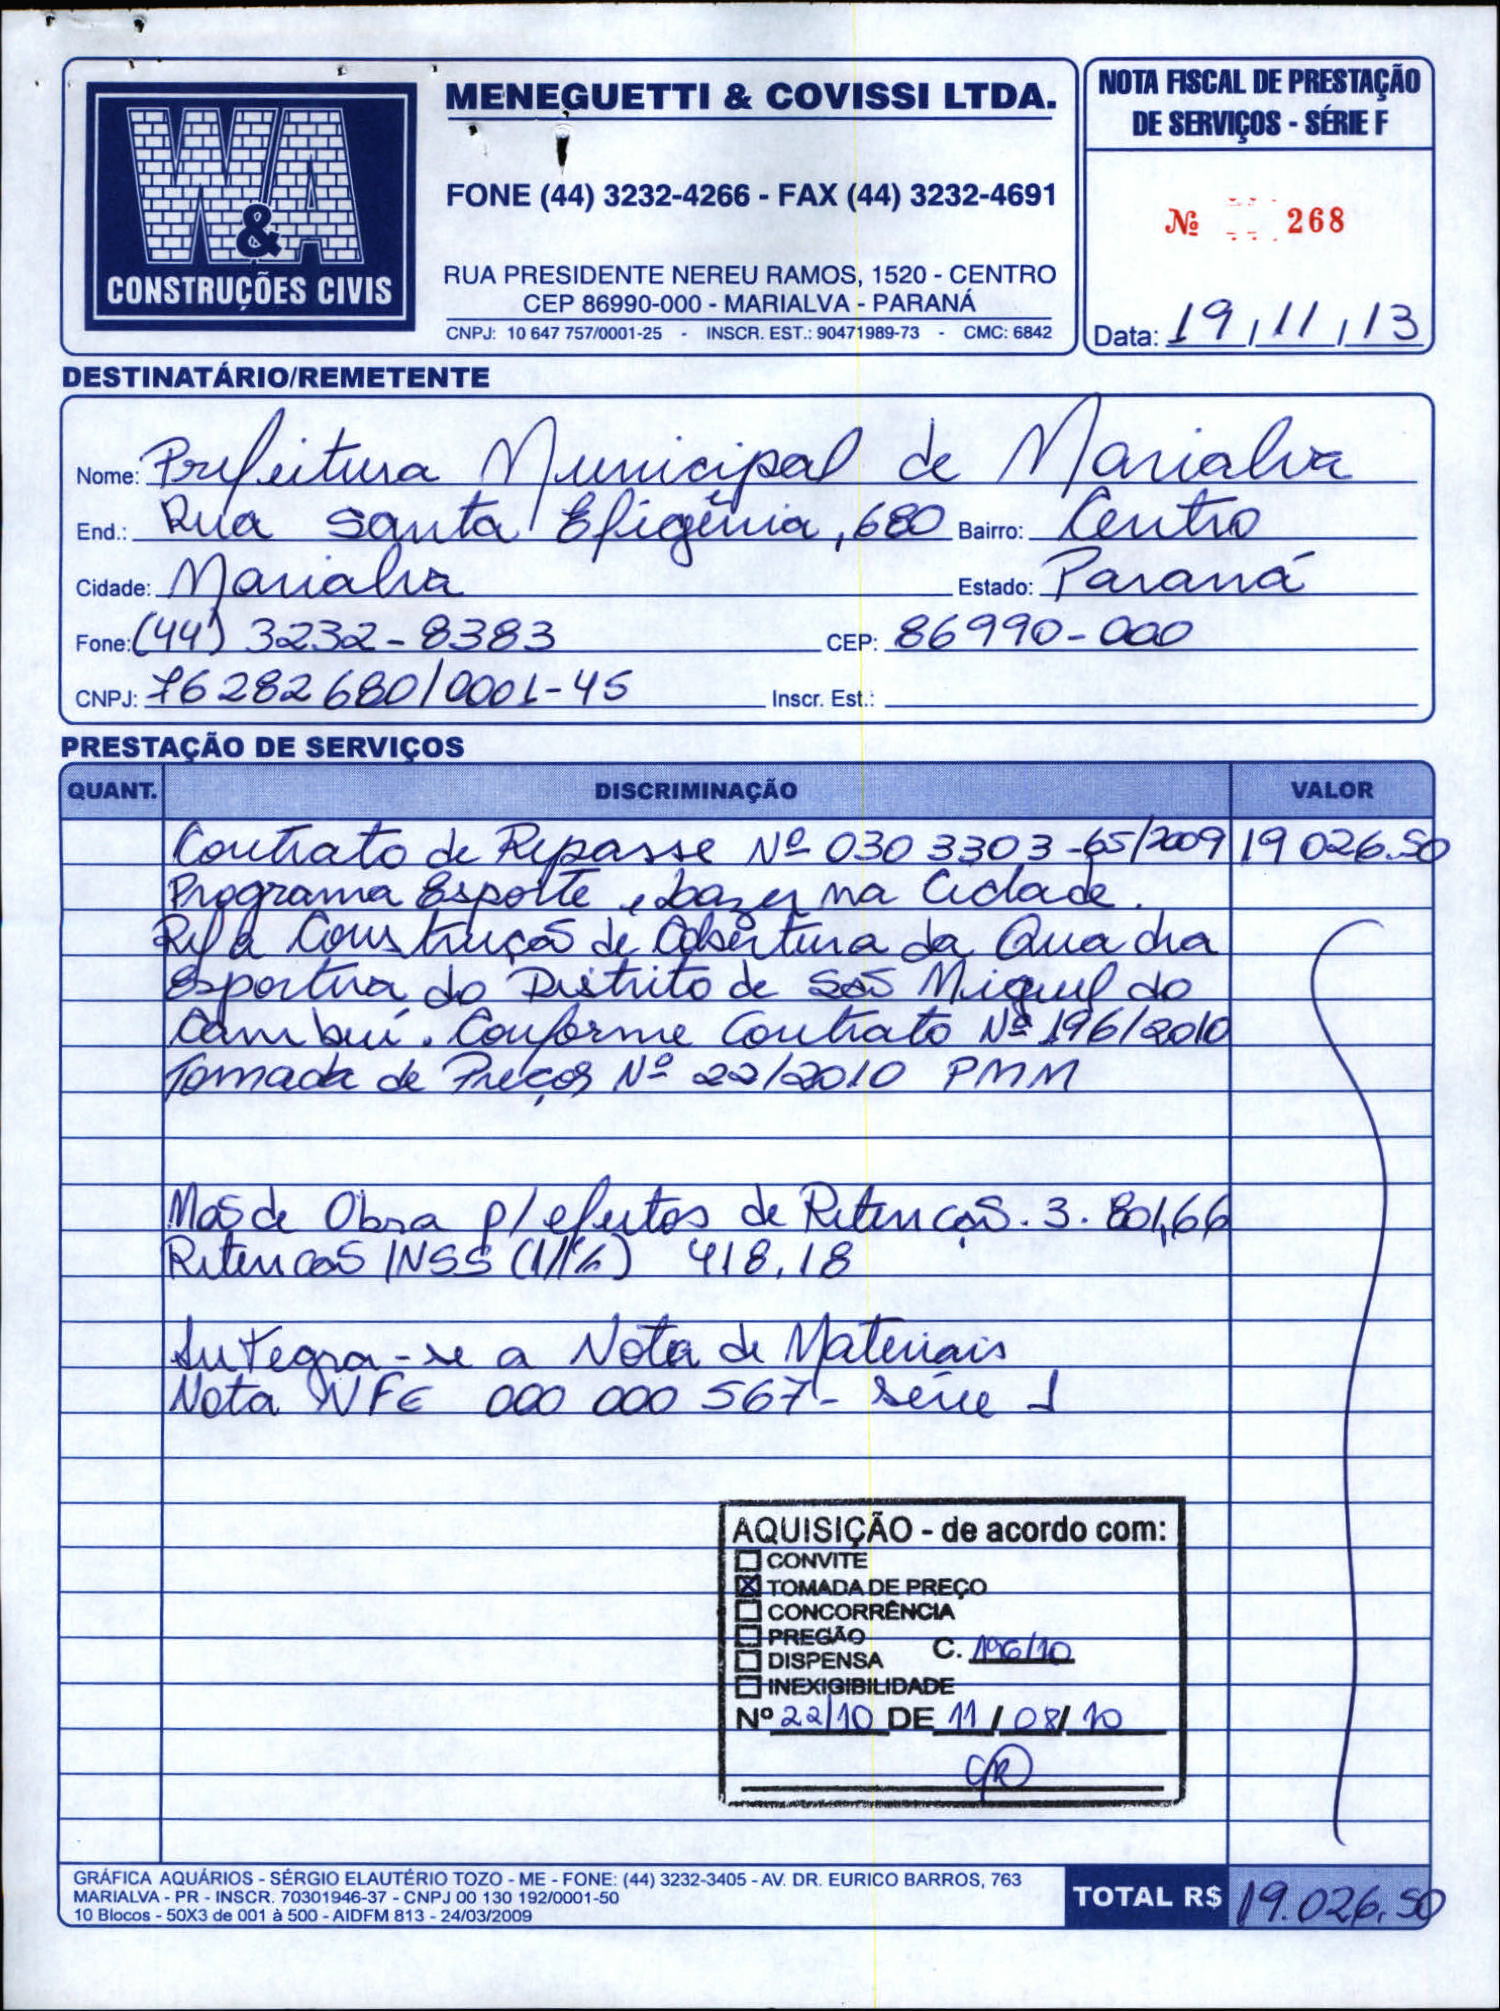 W&A
CONSTRUÇÕES CIVIS
MENEGUETTI & COVISSI LTDA.
FONE (44) 3232-4266 - FAX (44) 3232-4691
RUA PRESIDENTE NEREU RAMOS, 1520 - CENTRO
CEP 86990-000 - MARIALVA - PARANÁ
CNPJ: 10 647 757/0001-25 - INSCR. EST.: 90471989-73 - CMC: 6842
NOTA FISCAL DE PRESTAÇÃO
DE SERVIÇOS - SÉRIE F
Nº 268
Data: 19/11/13
DESTINATÁRIO/REMETENTE
Nome: Prefeitura Municipal de Marialva
End.: Rua Santa Efigênia, 680 Bairro: Centro
Cidade: Marialva Estado: Paraná
Fone: (44) 3232-8383 CEP: 86990-000
CNPJ: 76 282 680/0001-45 Inscr. Est.:
PRESTAÇÃO DE SERVIÇOS
QUANT. DISCRIMINAÇÃO VALOR
Contrato de Repasse Nº 030 3303-65/2009 19 026.50
Programa Esporte e Lazer na Cidade.
Ref a Construção de Cobertura da Quadra
Esportiva do Distrito de São Miguel do
Cambuí. Conforme Contrato Nº 196/2010
Tomada de Preços Nº 22/2010 PMM
Mão de Obra p/ efeitos de Retenção. 3.801,66
Retenção INSS (11%) 418,18
Integra-se a Nota de Materiais
Nota NFE 000 000 567 - série 1
AQUISIÇÃO - de acordo com:
CONVITE
TOMADA DE PREÇO
CONCORRÊNCIA
PREGÃO C. 196/10
DISPENSA
INEXIGIBILIDADE
Nº 22/10 DE 11/08/10
GRÁFICA AQUÁRIOS - SÉRGIO ELAUTÉRIO TOZO - ME - FONE: (44) 3232-3405 - AV. DR. EURICO BARROS, 763
MARIALVA - PR - INSCR. 70301946-37 - CNPJ 00 130 192/0001-50
10 Blocos - 50X3 de 001 à 500 - AIDFM 813 - 24/03/2009
TOTAL R$ 19.026,50